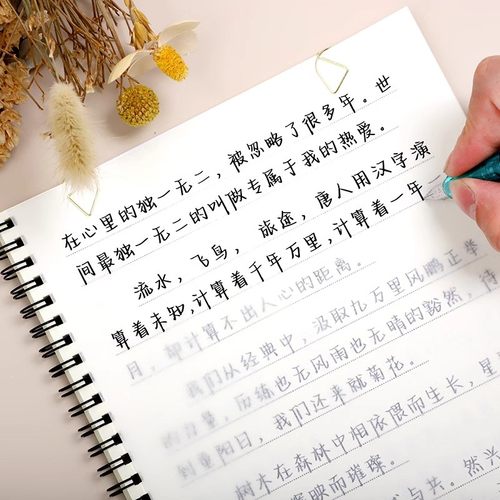 在心里的独一无二，被忽略了很多年。世
间最独一无二的叫做专属于我的热爱。
流水，飞鸟，旅途，唐人用汉字演
算着未知,计算着千年万里,计算着一年
月，却计算不出人心的距离。
我们从经典中，汲取九万里风鹏正举
的背景，历练也无风雨也无晴的豁然，待
到重阳日，我们还来就菊花。
树木在森林中相依偎而生长，星
映而璀璨。
点共。然兴